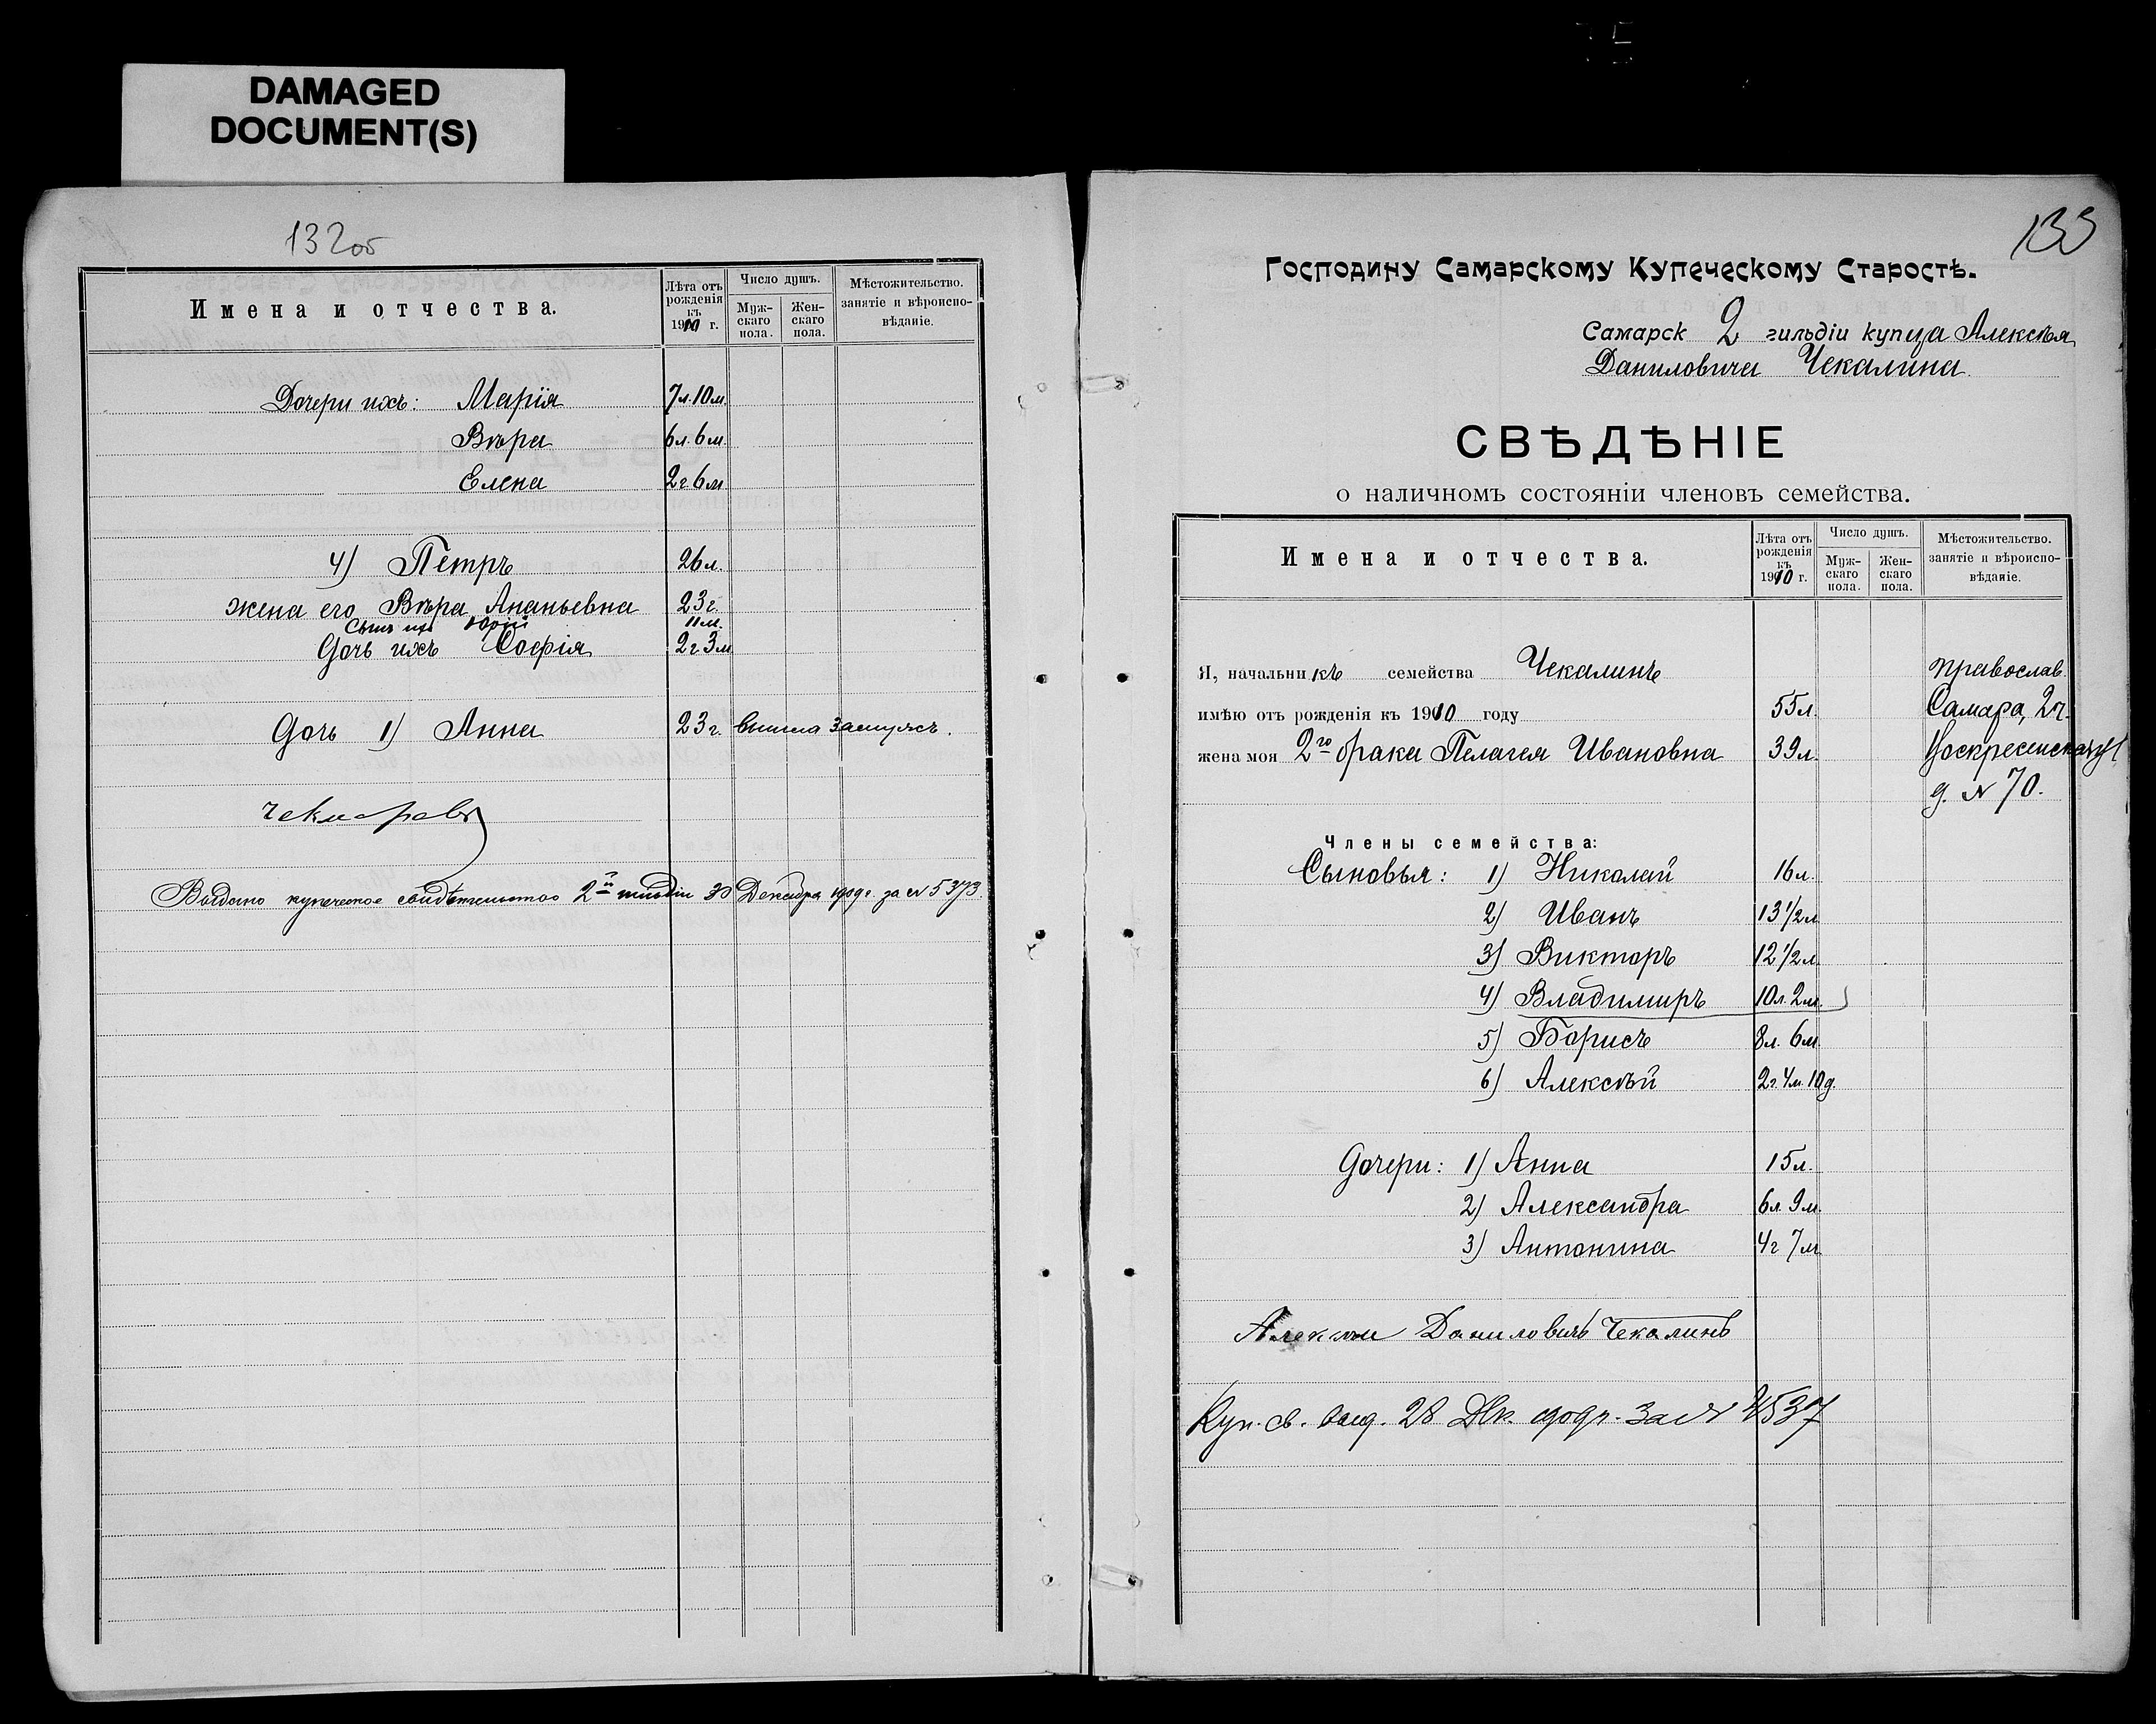 DAMAGED
DOCUMENT(S)
132об
Имена и отчества.
Лѣта отъ рожденія къ 1910 г.
Число душъ.
Мужскаго пола.
Женскаго пола.
Мѣстожительство. занятіе и вѣроисповѣданіе.
Дочери ихъ: Марія 7л.10м.
Вѣра 6л.6м.
Елена 2г6м
4) Петръ 26л.
жена его Вѣра Ананьевна 23г.
Сынъ ихъ Юрій 11м.
Дочь ихъ Софія 2г.3м
Дочь 1) Анна 23г. вышла замужъ.
Выдано купеческое свидѣтельство 2й гильдіи 30 Декабря 1909г за № 5373.
133
Господину Самарскому Купеческому Старостѣ.
Самарск 2 гильдіи купца Алексѣя
Даниловича Чекалина
СВѢДѢНІЕ
о наличномъ состояніи членовъ семейства.
Имена и отчества.
Лѣта отъ рожденія къ 1910 г.
Число душъ.
Мужскаго пола.
Женскаго пола.
Мѣстожительство. занятіе и вѣроисповѣданіе.
Я, начальникъ семейства Чекалинъ православ.
имѣю отъ рожденія къ 1910 году 55л. Самара, 2ч.
жена моя 2го брака Пелагея Ивановна 39л. Воскресенская ул
д. № 70.
Члены семейства:
Сыновья: 1) Николай 16л.
2) Иванъ 13½л
3) Викторъ 12½л.
4) Владимиръ 10л.2м.
5) Борисъ 8л. 6м.
6) Алексѣй 2г.4м.10д.
Дочери: 1) Анна 15л.
2) Александра 6л 9м.
3) Антонина 4г 7м
Алексѣй Даниловичъ Чекалинъ
Куп. св. выд. 28 Дек. 1909г. за №